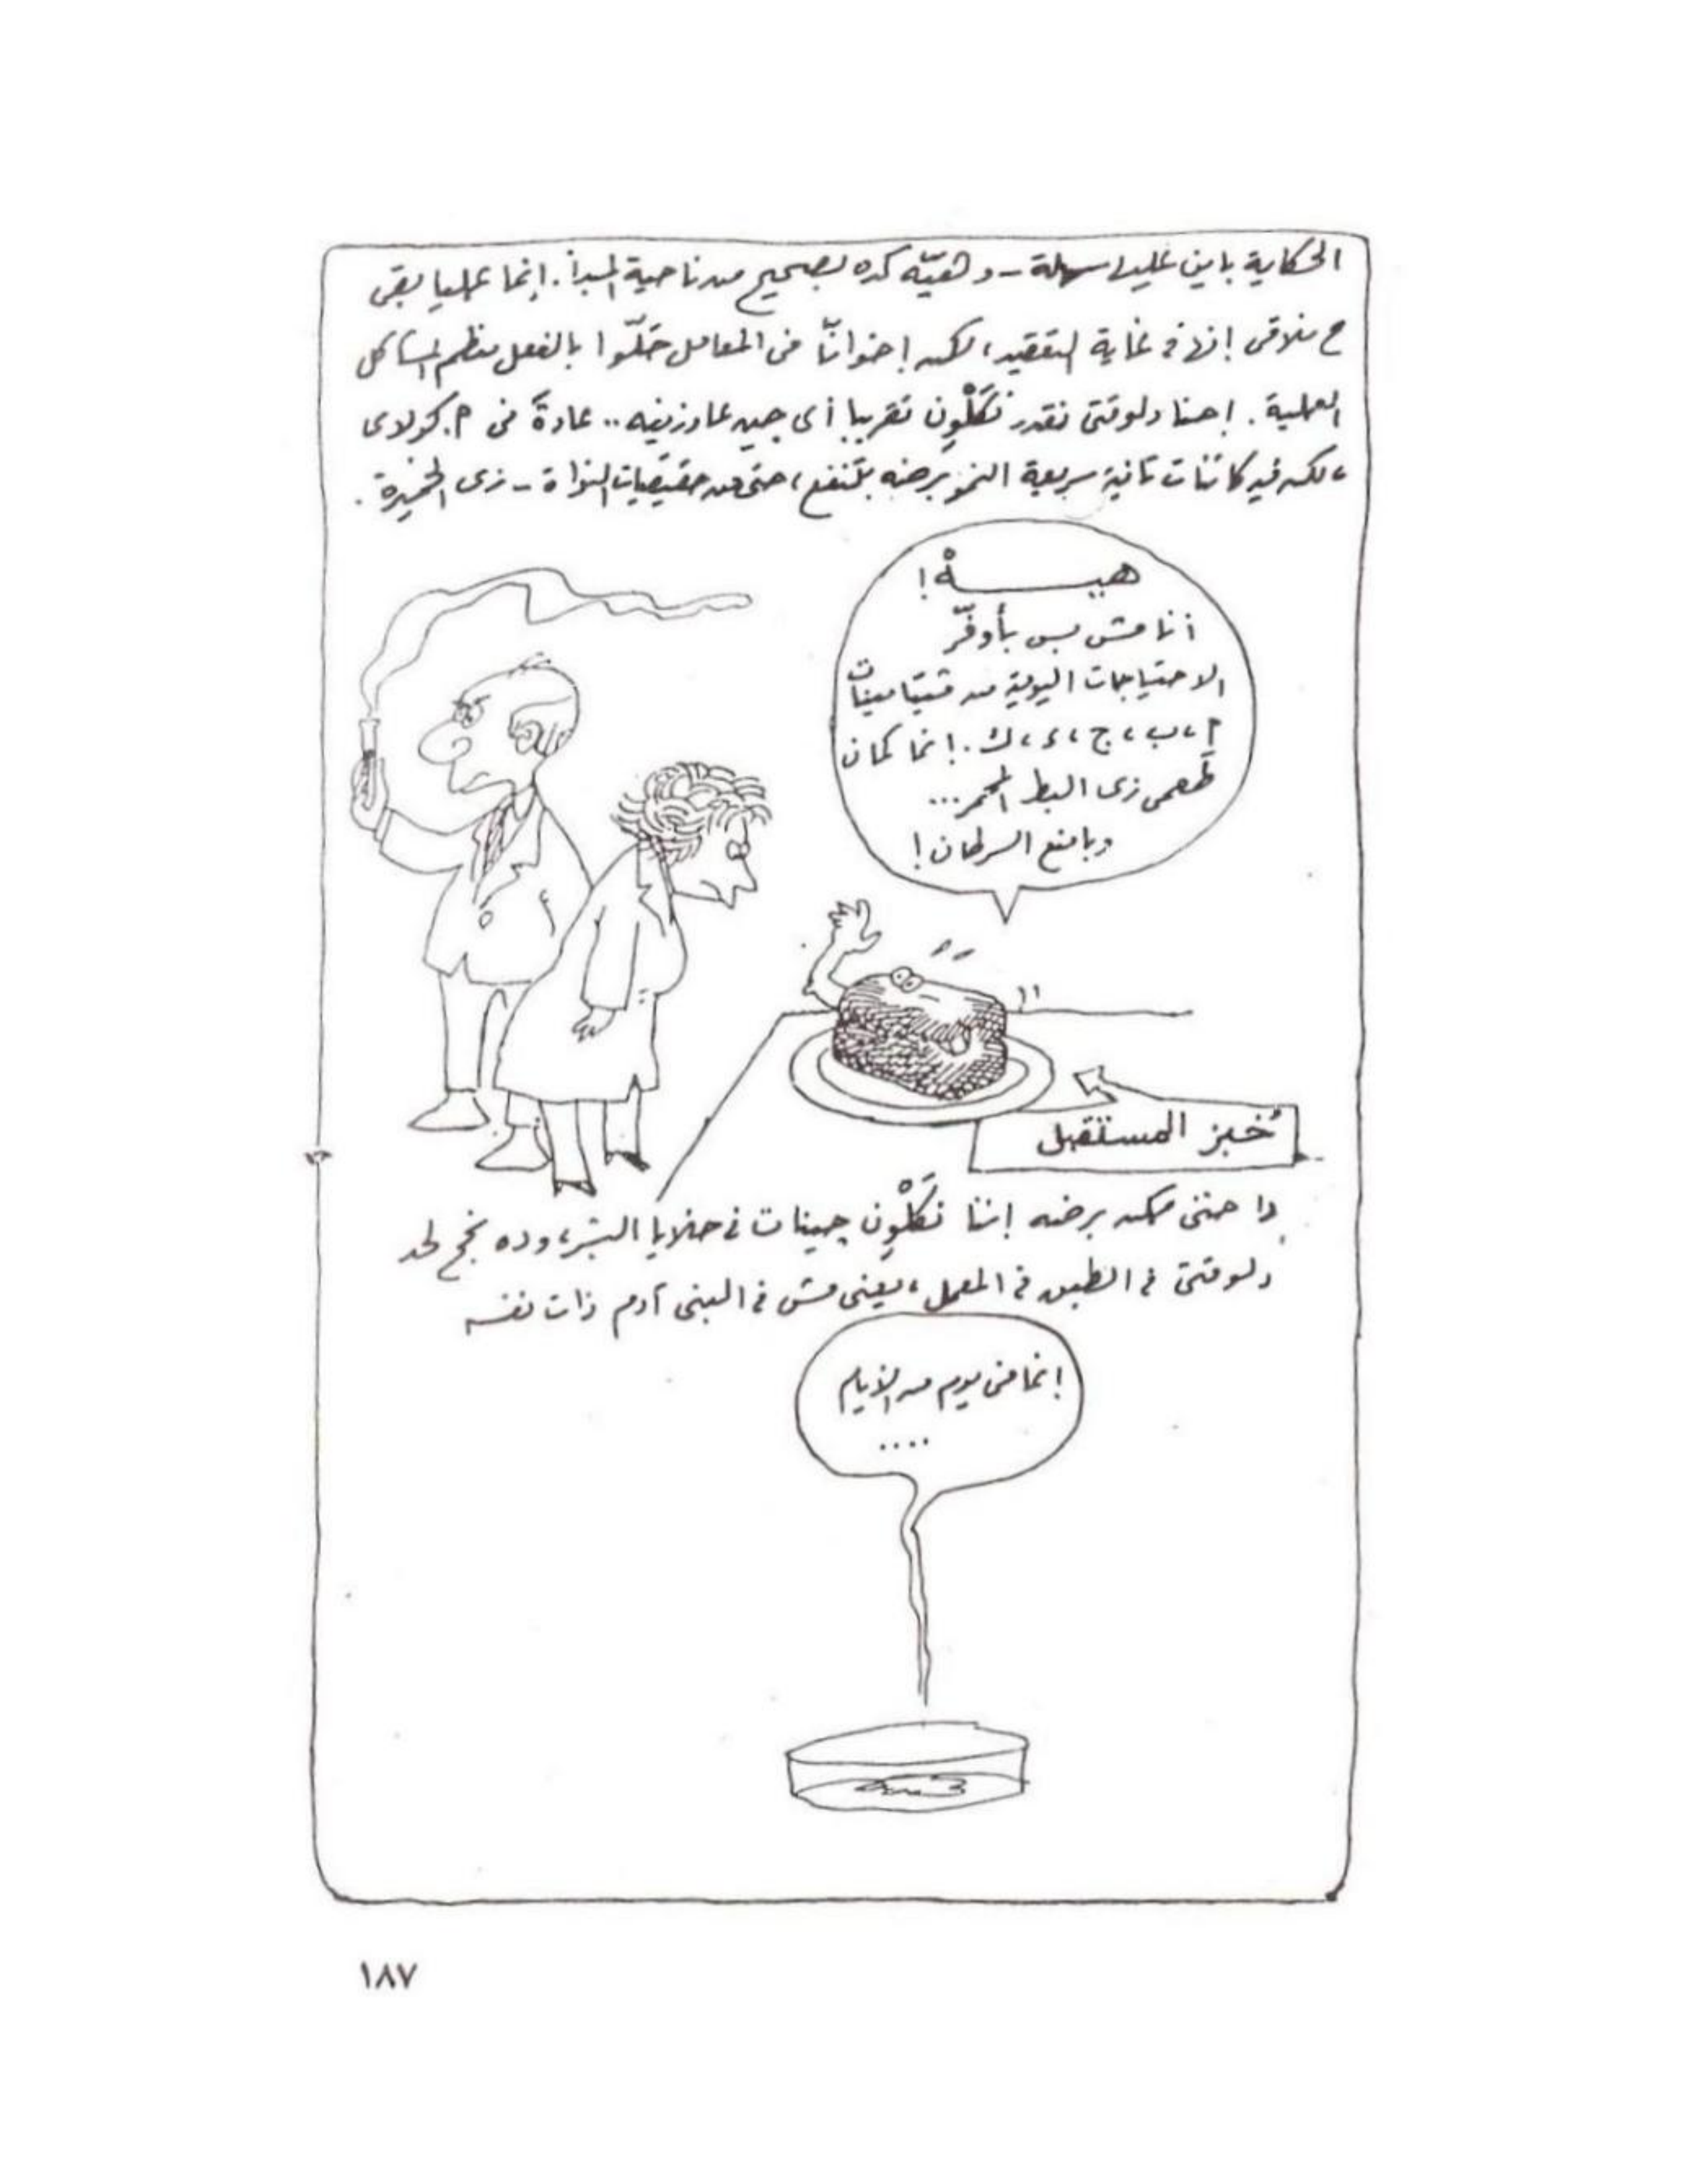 الحكاية باين عليها سهلة - وهيّه كده بصحيح من ناحية المبدأ. إنما عمليا بقى
ح نلاقى إنها فى غاية التعقيد، لكن إخوانّا فى المعامل حَلّوا بالفعل معظم المشاكل
العملية. احنا دلوقتى نقدر نَكَلْوِن تقريبا أى جين عاوزينه .. عادةً فى م. كولاى
، لكن فيه كائنات تانية سريعة النمو برضه بتنفع، حتى من حقيقيات النواة - زى الخميرة.
هيـــــهْ!
أنا مش بس بأوفّر
الاحتياجات اليومية من ڤيتامينات
أ، ب، ج، د، ك. إنما كمان
طعمى زى البط المحمر...
وبامنع السرطان!
خُبز المستقبل
دا حتى ممكن برضه إننا نَكَلْوِن چينات فى خلايا البشر، وده نجح لحد
دلوقتى فى الطبق فى المعمل، يعنى مش فى البنى آدم ذات نفسه
إنما فى يوم من الأيام
....
١٨٧